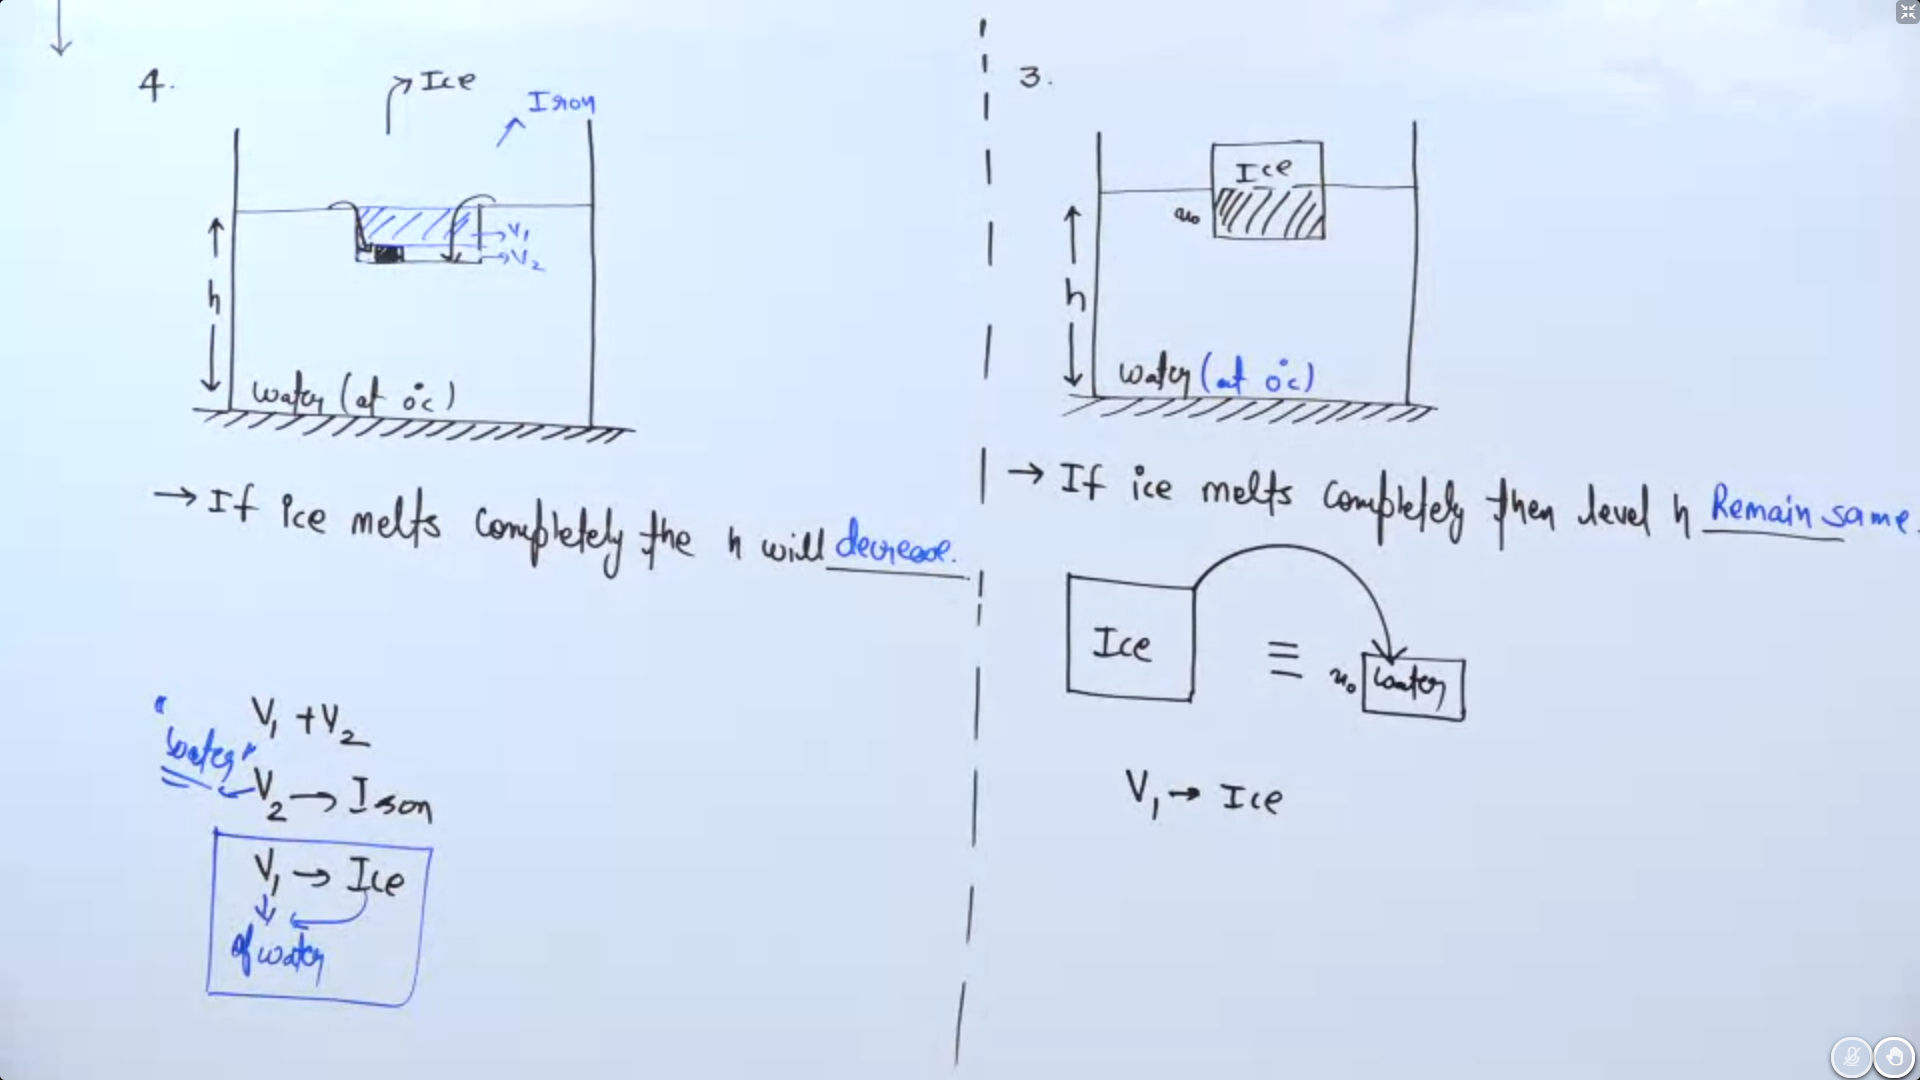 4.
Ice
Iron
V₁
V₂
h
water (at 0°c)
→ If ice melts completely the h will decrease.
V₁ + V₂
"water"
V₂ → Iron
V₁ → Ice
of water
3.
Ice
h
water (at 0°c)
→ If ice melts completely then level h Remain same.
Ice ≡ water
V₁ → Ice